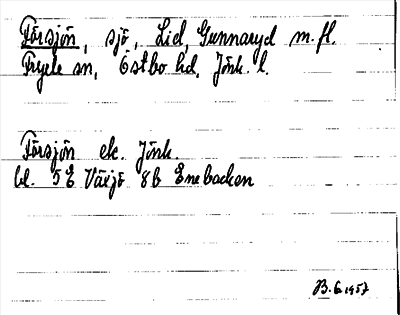 Försjön, sjö, Lid, Gunnaryd m.fl.
Fryele sn, Östbo hd, Jönk. l.
Försjön ek. Jönk.
bl. 5E Växjö 8b Enebacken
B.G 1957